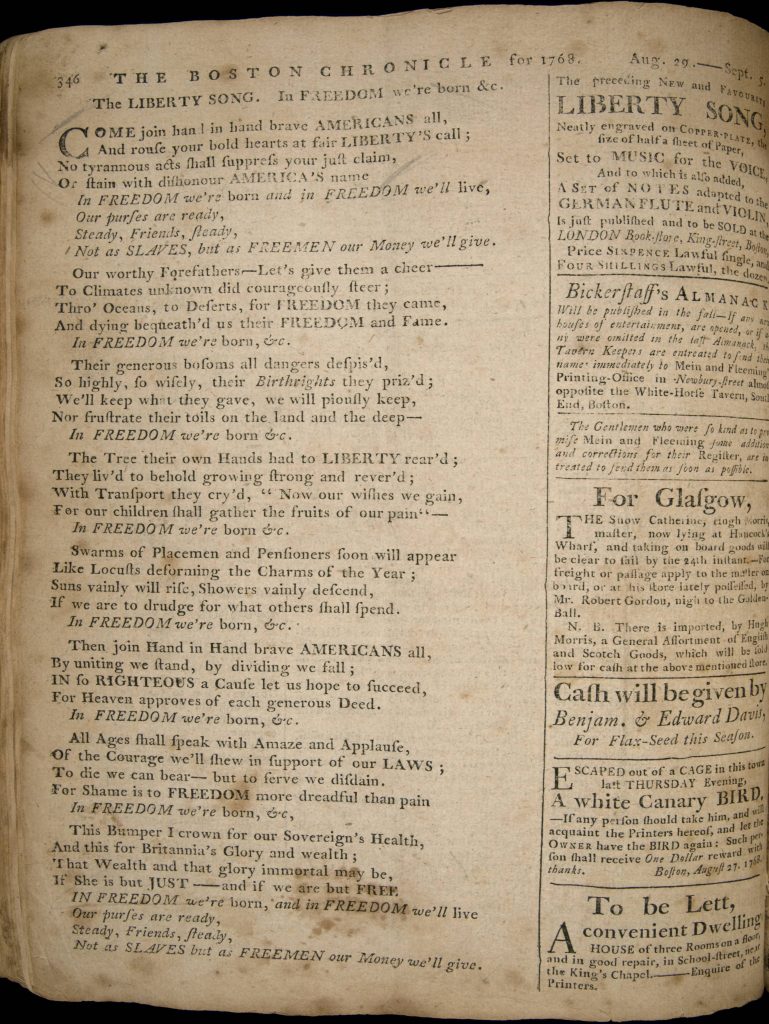 346 THE BOSTON CHRONICLE for 1768. Aug. 29.—Sept. 5.
The LIBERTY SONG. In FREEDOM we're born &c.
COME join hand in hand brave AMERICANS all,
And rouſe your bold hearts at fair LIBERTY'S call;
No tyrannous acts ſhall ſuppreſs your juſt claim,
Or ſtain with diſhonour AMERICA'S name
In FREEDOM we're born and in FREEDOM we'll live,
Our purſes are ready,
Steady, Friends, ſteady,
Not as SLAVES, but as FREEMEN our Money we'll give.
Our worthy Forefathers—Let's give them a cheer———
To Climates unknown did courageouſly ſteer;
Thro' Oceans, to Deſerts, for FREEDOM they came,
And dying bequeath'd us their FREEDOM and Fame.
In FREEDOM we're born, &c.
Their generous boſoms all dangers deſpis'd,
So highly, ſo wiſely, their Birthrights they priz'd;
We'll keep what they gave, we will piouſly keep,
Nor fruſtrate their toils on the land and the deep—
In FREEDOM we're born &c.
The Tree their own Hands had to LIBERTY rear'd;
They liv'd to behold growing ſtrong and rever'd;
With Tranſport they cry'd, “ Now our wiſhes we gain,
For our children ſhall gather the fruits of our pain“—
In FREEDOM we're born &c.
Swarms of Placemen and Penſioners ſoon will appear
Like Locuſts deforming the Charms of the Year;
Suns vainly will riſe, Showers vainly deſcend,
If we are to drudge for what others ſhall ſpend.
In FREEDOM we're born, &c.
Then join Hand in Hand brave AMERICANS all,
By uniting we ſtand, by dividing we fall;
IN ſo RIGHTEOUS a Cauſe let us hope to ſucceed,
For Heaven approves of each generous Deed.
In FREEDOM we're born, &c.
All Ages ſhall ſpeak with Amaze and Applauſe,
Of the Courage we'll ſhew in ſupport of our LAWS;
To die we can bear— but to ſerve we diſdain.
For Shame is to FREEDOM more dreadful than pain
In FREEDOM we're born, &c,
This Bumper I crown for our Sovereign's Health,
And this for Britannia's Glory and wealth;
That Wealth and that glory immortal may be,
If She is but JUST ——and if we are but FREE
IN FREEDOM we're born, and in FREEDOM we'll live
Our purſes are ready,
Steady, Friends, ſteady,
Not as SLAVES but as FREEMEN our Money we'll give.
The preceding NEW and FAVOURITE
LIBERTY SONG,
Neatly engraved on COPPER-PLATE, the
ſize of half a ſheet of Paper,
Set to MUSIC for the VOICE,
And to which is alſo added,
A SET of NOTES adapted to the
GERMAN FLUTE and VIOLIN,
Is juſt publiſhed and to be SOLD at the
LONDON Book-ſtore, King-ſtreet, Boſton,
Price SIXPENCE Lawful ſingle, and
FOUR SHILLINGS Lawful, the dozen.
Bickerſtaff's ALMANACK
Will be publiſhed in the fall—If any new
houſes of entertainment, are opened, or if
ny were omitted in the laſt Almanack, the
Tavern Keepers are entreated to ſend their
name immediately to Mein and Fleeming's
Printing-Office in Newbury-ſtreet almoſt
oppoſite the White-Horſe Tavern, South
End, Boſton.
The Gentlemen who were ſo kind as to pro
miſe Mein and Fleeming ſome addition
and corrections for their Regiſter, are in
treated to ſend them as ſoon as poſſible.
For Glaſgow,
THE Snow Catherine, Hugh Morris,
maſter, now lying at Hancock's
Wharf, and taking on board goods will
be clear to ſail by the 24th inſtant.—For
freight or paſſage apply to the maſter on
board, or at his ſtore lately poſſeſſed, by
Mr. Robert Gordon, nigh to the Golden-
Ball.
N. B. There is imported, by Hugh
Morris, a General Aſſortment of Engliſh
and Scotch Goods, which will be ſold
low for caſh at the above mentioned ſtore.
Caſh will be given by
Benjam. & Edward Davis,
For Flax-Seed this Seaſon.
ESCAPED out of a CAGE in this town
laſt THURSDAY Evening,
A white Canary BIRD,
—If any perſon ſhould take him, and will
acquaint the Printers hereof, and let the
OWNER have the BIRD again: Such per-
ſon ſhall receive One Dollar reward with
thanks. Boſton, Auguſt 27. 1768.
To be Lett,
A convenient Dwelling
HOUSE of three Rooms on a floor,
and in good repair, in School-ſtreet, near
the King's Chapel.———Enquire of the
Printers.